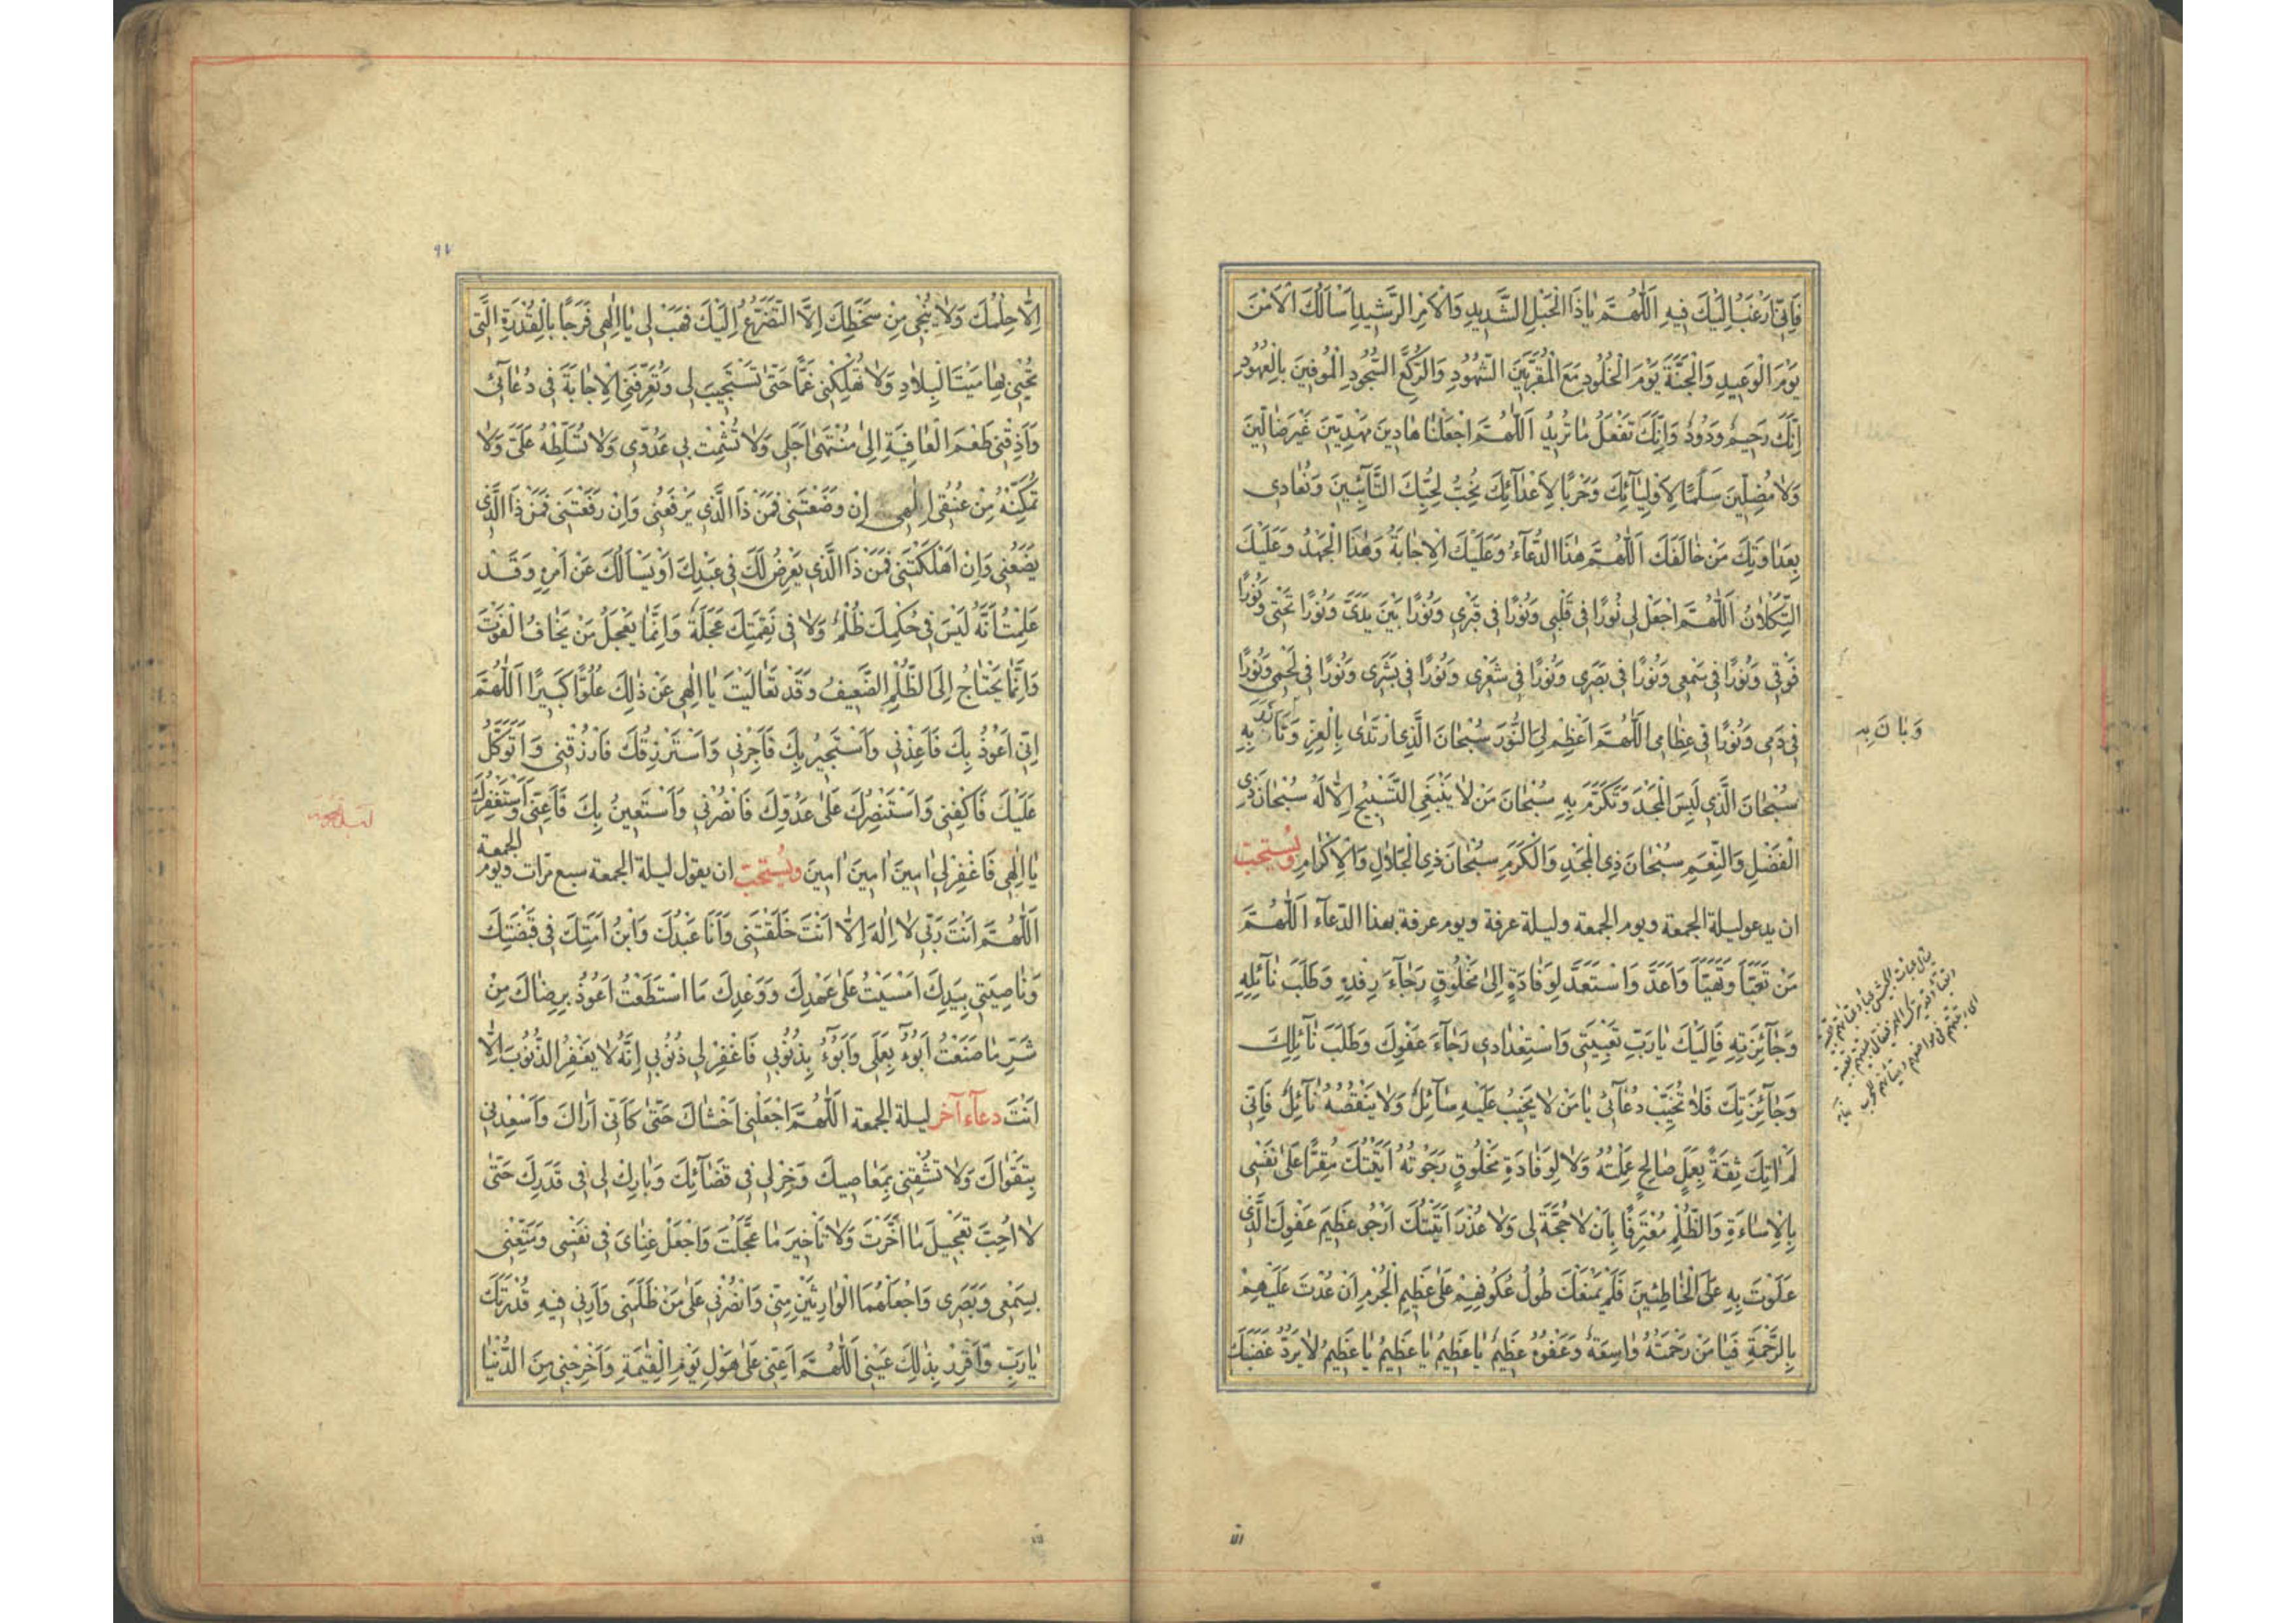 فَاِنّي اَرْغَبُ اِلَيْكَ فيهِ اَللّٰهُمَّ يا ذَا الْحَبْلِ الشَّديدِ وَالْاَمْرِ الرَّشيدِ اَسْاَلُكَ الْاَمْنَ
يَوْمَ الْوَعيدِ وَالْجَنَّةَ يَوْمَ الْخُلُودِ مَعَ الْمُقَرَّبينَ الشُّهُودِ وَالرُّكَّعِ السُّجُودِ الْمُوفينَ بِالْعُهُودِ
اِنَّكَ رَحيمٌ وَدُودٌ وَاِنَّكَ تَفْعَلُ ما تُريدُ اَللّٰهُمَّ اجْعَلْنا هادينَ مَهْدِيّينَ غَيْرَ ضالّينَ
وَلا مُضِلّينَ سَلْمًا لِاَوْلِيآئِكَ وَحَرْبًا لِاَعْدآئِكَ نُحِبُّ لِحُبِّكَ التَّآئِبينَ وَنُعادي
بِعَداوَتِكَ مَنْ خالَفَكَ اَللّٰهُمَّ هٰذَا الدُّعآءُ وَعَلَيْكَ الْاِجابَةُ وَهٰذَا الْجَهْدُ وَعَلَيْكَ
التُّكْلانُ اَللّٰهُمَّ اجْعَلْ لي نُورًا في قَلْبي وَنُورًا في قَبْري وَنُورًا بَيْنَ يَدَيَّ وَنُورًا تَحْتي وَنُورًا
فَوْقي وَنُورًا في سَمْعي وَنُورًا في بَصَري وَنُورًا في شَعْري وَنُورًا في بَشَري وَنُورًا في لَحْمي وَنُورًا
في دَمي وَنُورًا في عِظامي اَللّٰهُمَّ اَعْظِمْ لِيَ النُّورَ سُبْحانَ الَّذِي ارْتَدٰى بِالْعِزِّ وَ بِهِ
وَبانَ بِهِ
سُبْحانَ الَّذي لَبِسَ الْمَجْدَ وَتَكَرَّمَ بِهِ سُبْحانَ مَنْ لا يَنْبَغِي التَّسْبيحُ اِلّا لَهُ سُبْحانَ ذِي
الْفَضْلِ وَالنِّعَمِ سُبْحانَ ذِي الْمَجْدِ وَالْكَرَمِ سُبْحانَ ذِي الْجَلالِ وَالْاِكْرامِ ويُستحبّ
ان يدعو ليلة الجمعة ويوم الجمعة وليلة عرفة ويوم عرفة بهذا الدّعآء اَللّٰهُمَّ
مَنْ تَعَبَّاَ وَتَهَيَّاَ وَاَعَدَّ وَاسْتَعَدَّ لِوِفادَةٍ اِلىٰ مَخْلُوقٍ رَجآءَ رِفْدِهِ وَطَلَبَ نآئِلِهِ
وَجآئِزَتِهِ فَاِلَيْكَ يا رَبِّ تَعْبِيَتي وَاسْتِعْدادي رَجآءَ عَفْوِكَ وَطَلَبَ نآئِلِكَ
وَجآئِزَتِكَ فَلا تُخَيِّبْ دُعآئي يا مَنْ لا يَخيبُ عَلَيْهِ سآئِلٌ وَلا يَنْقُصُهُ نآئِلٌ فَاِنّي
لَمْ اٰتِكَ ثِقَةً بِعَمَلٍ صالِحٍ عَمِلْتُهُ وَلا لِوِفادَةِ مَخْلُوقٍ رَجَوْتُهُ اَتَيْتُكَ مُقِرًّا عَلىٰ نَفْسي
بِالْاِساءَةِ وَالظُّلْمِ مُعْتَرِفًا بِاَنْ لا حُجَّةَ لي وَلا عُذْرَ اَتَيْتُكَ اَرْجُو عَظيمَ عَفْوِكَ الَّذي
عَلَوْتَ بِهِ عَلَى الْخاطِئينَ فَلَمْ يَمْنَعْكَ طُولُ عُكُوفِهِمْ عَلىٰ عَظيمِ الْجُرْمِ اَنْ عُدْتَ عَلَيْهِمْ
بِالرَّحْمَةِ فَيا مَنْ رَحْمَتُهُ واسِعَةٌ وَعَفْوُهُ عَظيمٌ يا عَظيمُ يا عَظيمُ يا عَظيمُ لا يَرُدُّ غَضَبَكَ
اِلّا حِلْمُكَ وَلا يُنْجي مِنْ سَخَطِكَ اِلَّا التَّضَرُّعُ اِلَيْكَ فَهَبْ لي يا اِلٰهي فَرَجًا بِالْقُدْرَةِ الَّتي
تُحْيي بِها مَيْتَ الْبِلادِ وَلا تُهْلِكْني غَمًّا حَتّىٰ تَسْتَجيبَ لي وَتُعَرِّفَنِي الْاِجابَةَ في دُعآئي
وَاَذِقْني طَعْمَ الْعافِيَةِ اِلىٰ مُنْتَهىٰ اَجَلي وَلا تُشْمِتْ بي عَدُوّي وَلا تُسَلِّطْهُ عَلَيَّ وَلا
تُمَكِّنْهُ مِنْ عُنُقي اِلٰهي اِنْ وَضَعْتَني فَمَنْ ذَا الَّذي يَرْفَعُني وَاِنْ رَفَعْتَني فَمَنْ ذَا الَّذي
يَضَعُني وَاِنْ اَهْلَكْتَني فَمَنْ ذَا الَّذي يَعْرِضُ لَكَ في عَبْدِكَ اَوْ يَسْاَلُكَ عَنْ اَمْرِهِ وَقَدْ
عَلِمْتُ اَنَّهُ لَيْسَ في حُكْمِكَ ظُلْمٌ وَلا في نَقِمَتِكَ عَجَلَةٌ وَاِنَّما يَعْجَلُ مَنْ يَخافُ الْفَوْتَ
وَاِنَّما يَحْتاجُ اِلَى الظُّلْمِ الضَّعيفُ وَقَدْ تَعالَيْتَ يا اِلٰهي عَنْ ذٰلِكَ عُلُوًّا كَبيرًا اَللّٰهُمَّ
اِنّي اَعُوذُ بِكَ فَاَعِذْني وَاَسْتَجيرُ بِكَ فَاَجِرْني وَاَسْتَرْزِقُكَ فَارْزُقْني وَاَتَوَكَّلُ
عَلَيْكَ فَاكْفِني وَاَسْتَنْصِرُكَ عَلىٰ عَدُوِّكَ فَانْصُرْني وَاَسْتَعينُ بِكَ فَاَعِنّي وَاَسْتَغْفِرُكَ
يا اِلٰهي فَاغْفِرْ لي اٰمينَ اٰمينَ اٰمينَ ويُستحبّ ان يقول ليلة الجمعة سبع مرّات ويوم الجمعة
اَللّٰهُمَّ اَنْتَ رَبّي لا اِلٰهَ اِلّا اَنْتَ خَلَقْتَني وَاَنَا عَبْدُكَ وَابْنُ اَمَتِكَ في قَبْضَتِكَ
وَناصِيَتي بِيَدِكَ اَمْسَيْتُ عَلىٰ عَهْدِكَ وَوَعْدِكَ مَا اسْتَطَعْتُ اَعُوذُ بِرِضاكَ مِنْ
شَرِّ ما صَنَعْتُ اَبُوءُ بِعَمَلي وَاَبُوءُ بِذُنُوبي فَاغْفِرْ لي ذُنُوبي اِنَّهُ لا يَغْفِرُ الذُّنُوبَ اِلّا
اَنْتَ دعآء آخر ليلة الجمعة اَللّٰهُمَّ اجْعَلْني اَخْشاكَ حَتّىٰ كَاَنّي اَراكَ وَاَسْعِدْني
بِتَقْواكَ وَلا تُشْقِني بِمَعاصيكَ وَخِرْ لي في قَضآئِكَ وَبارِكْ لي في قَدَرِكَ حَتّىٰ
لا اُحِبَّ تَعْجيلَ ما اَخَّرْتَ وَلا تَاْخيرَ ما عَجَّلْتَ وَاجْعَلْ غِنايَ في نَفْسي وَمَتِّعْني
بِسَمْعي وَبَصَري وَاجْعَلْهُمَا الْوارِثَيْنِ مِنّي وَانْصُرْني عَلىٰ مَنْ ظَلَمَني وَاَرِني فيهِ قُدْرَتَكَ
يا رَبِّ وَاَقْرِرْ بِذٰلِكَ عَيْني اَللّٰهُمَّ اَعِنّي عَلىٰ هَوْلِ يَوْمِ الْقِيٰمَةِ وَاَخْرِجْني مِنَ الدُّنْيا